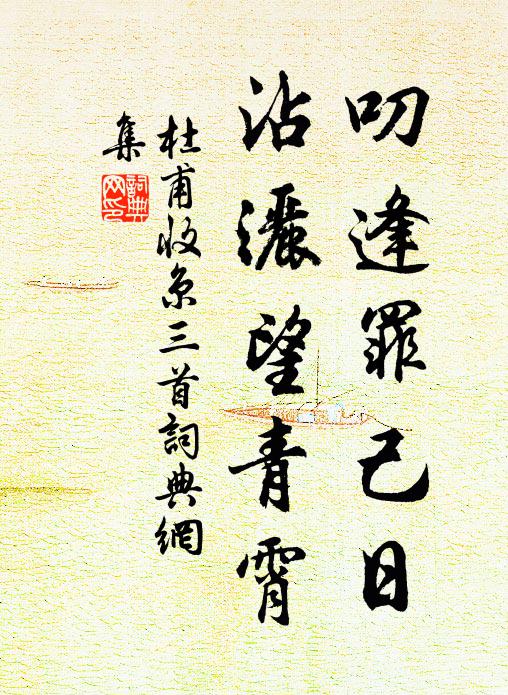 叨逢罪己日
沾灑望青霄
杜甫收京三首詞典網
集
詞典
网印